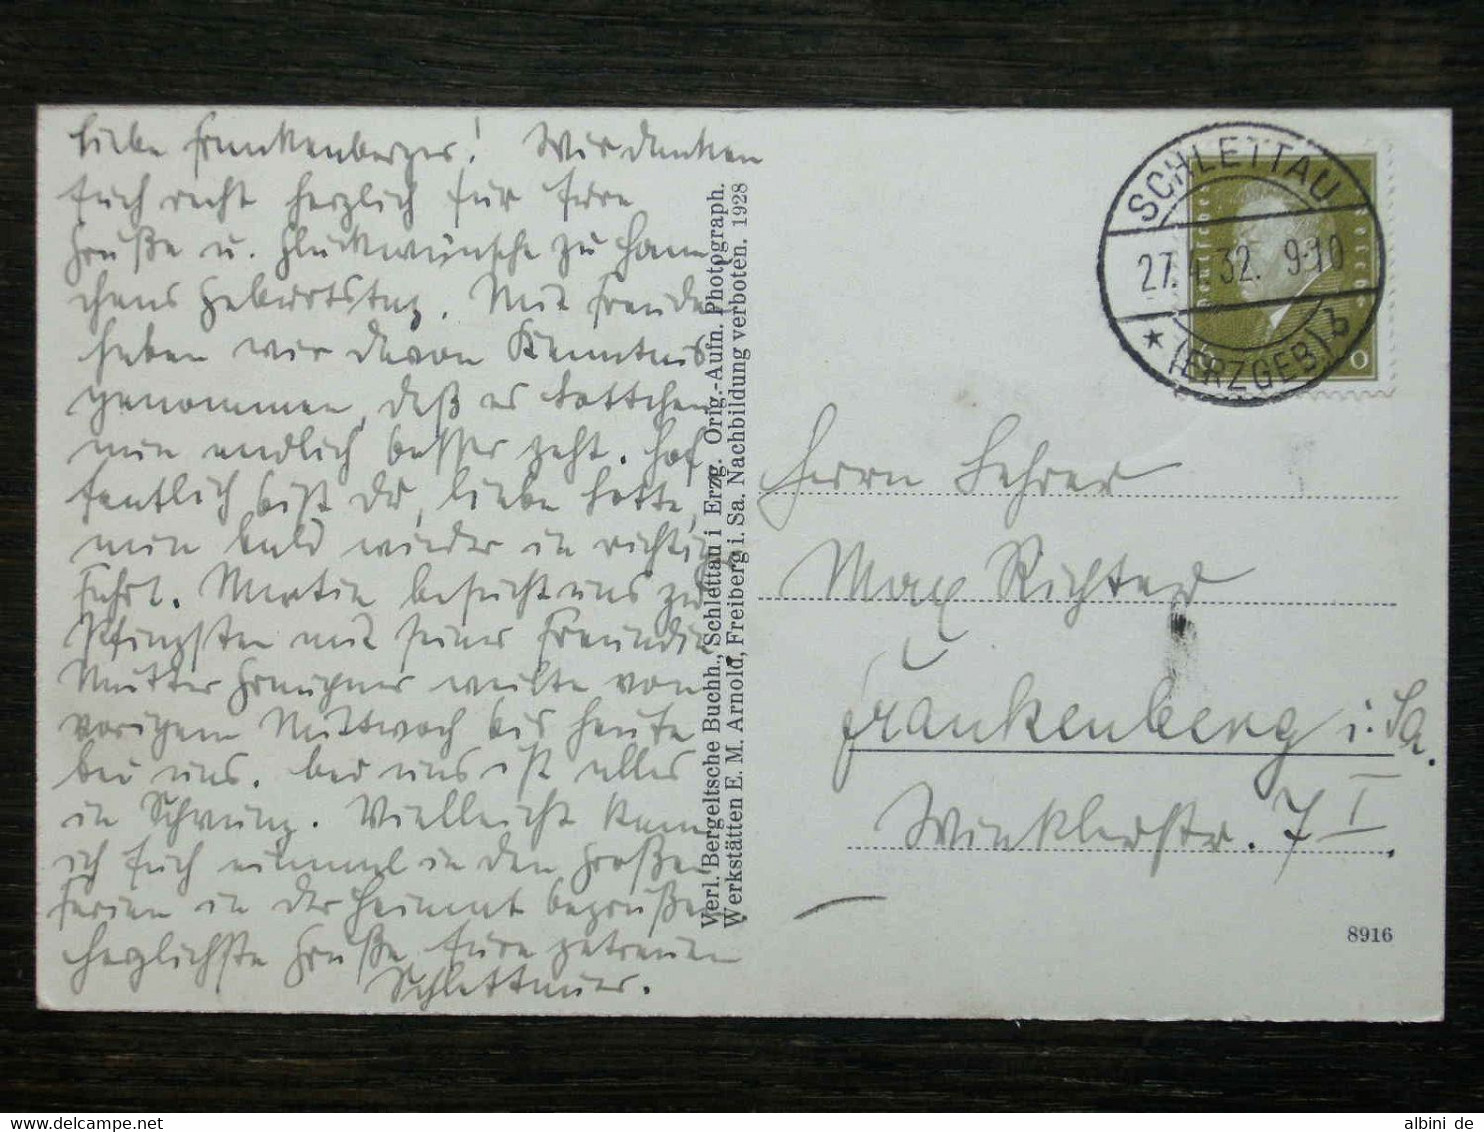 Liebe Frankenberger! Wir danken
Euch recht herzlich für Eure
Grüße u. Glückwünsche zu Hann
chens Geburtstag. Mit Freude
haben wir davon Kenntnis
genommen, daß es Lottchen
nun endlich besser geht. Hof
fentlich bist Du, liebe Lotte,
nun bald wieder in richtiger
Fahrt. Martin besucht uns zu
Pfingsten mit seiner Freundin.
Mutter weilte von
vorigem Mittwoch bis heute
bei uns. Bei uns ist alles
in Schwung. Vielleicht kann
ich Euch einmal in den großen
Ferien in der Heimat begrüßen.
Herzlichste Grüße Eure getreuen
Schlettauer.
Verl. Bergeltsche Buchh., Schlettau i Erzg. Orig.-Aufn. Photograph.
Werkstätten E. M. Arnold, Freiberg i. Sa. Nachbildung verboten. 1928
SCHLETTAU
27. 32. 9-10
* (ERZGEB) b
Deutsches Reich
Herrn Lehrer
Max Richter
Frankenberg i. Sa.
Winklerstr. 7 I.
8916
albini de